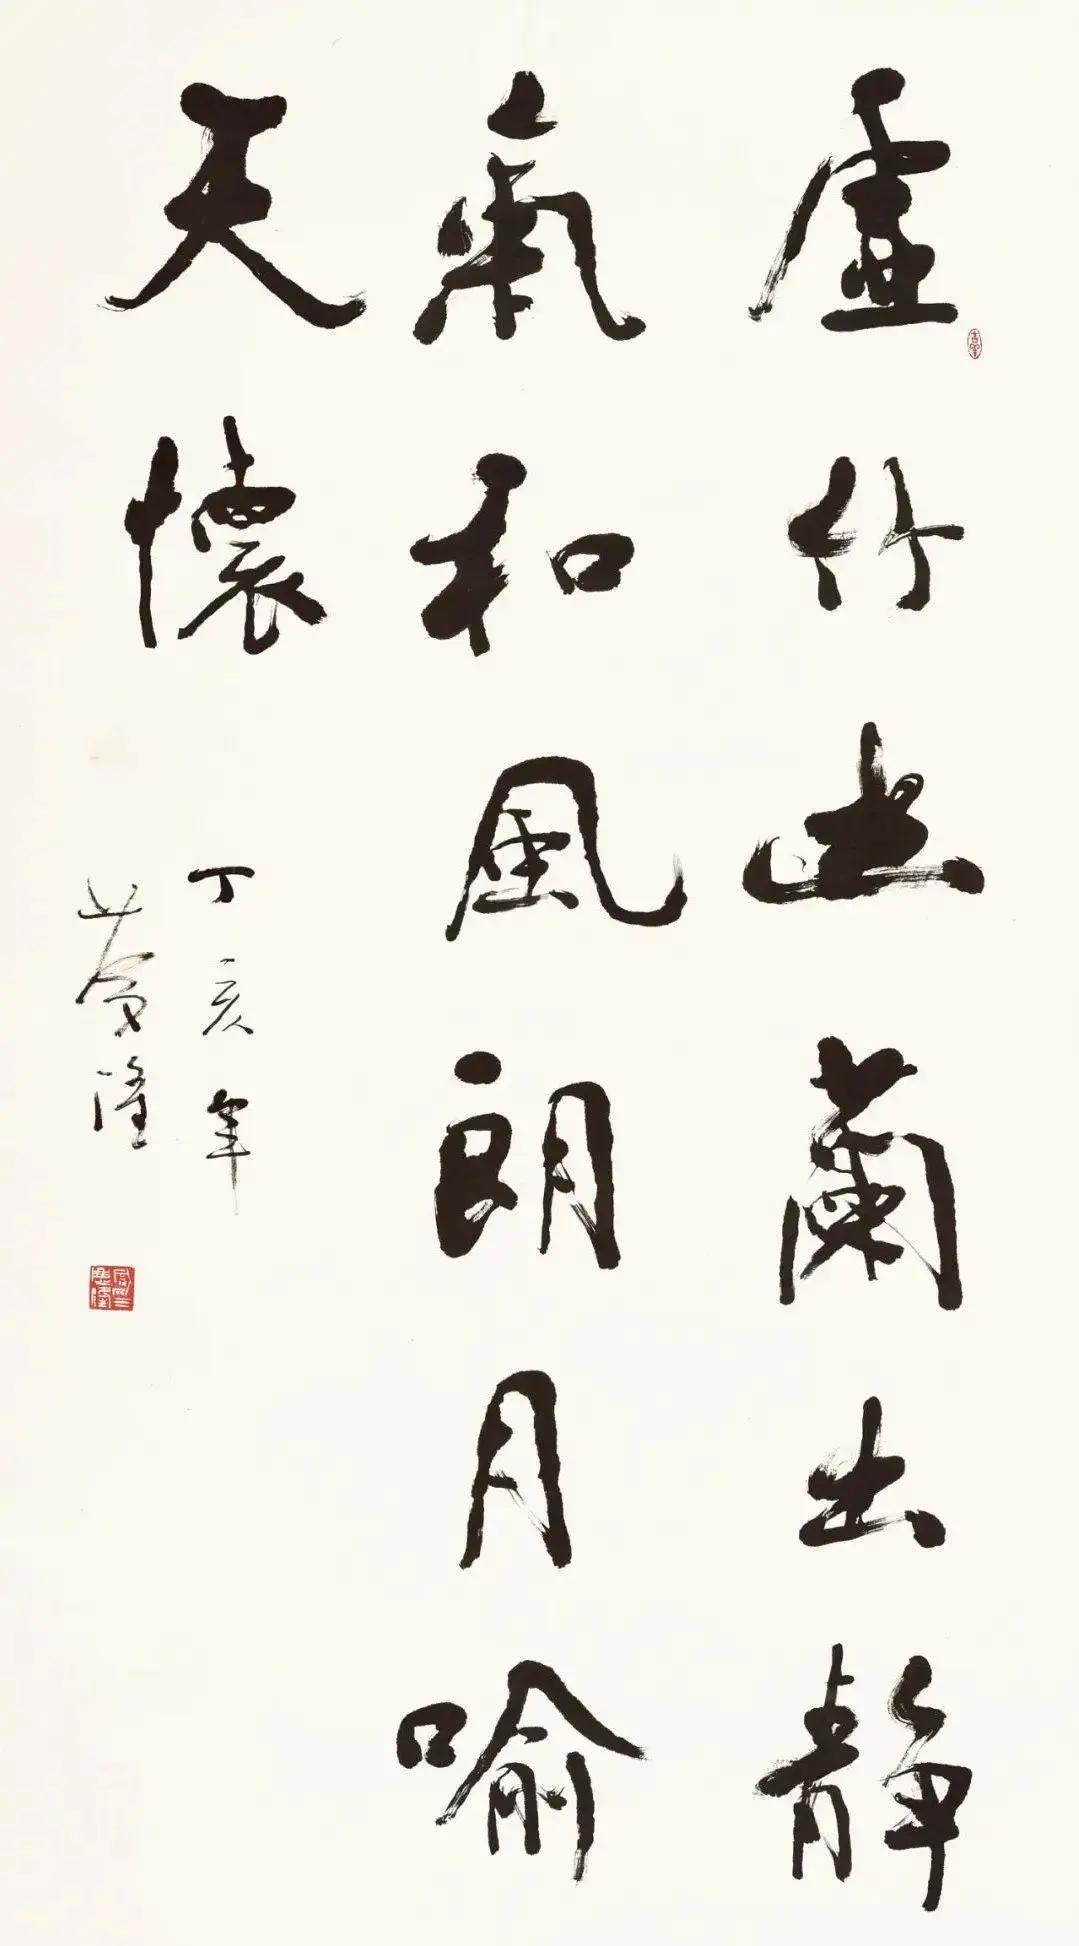 虛竹幽蘭生靜
氣和風朗月喻
天懷
丁亥年